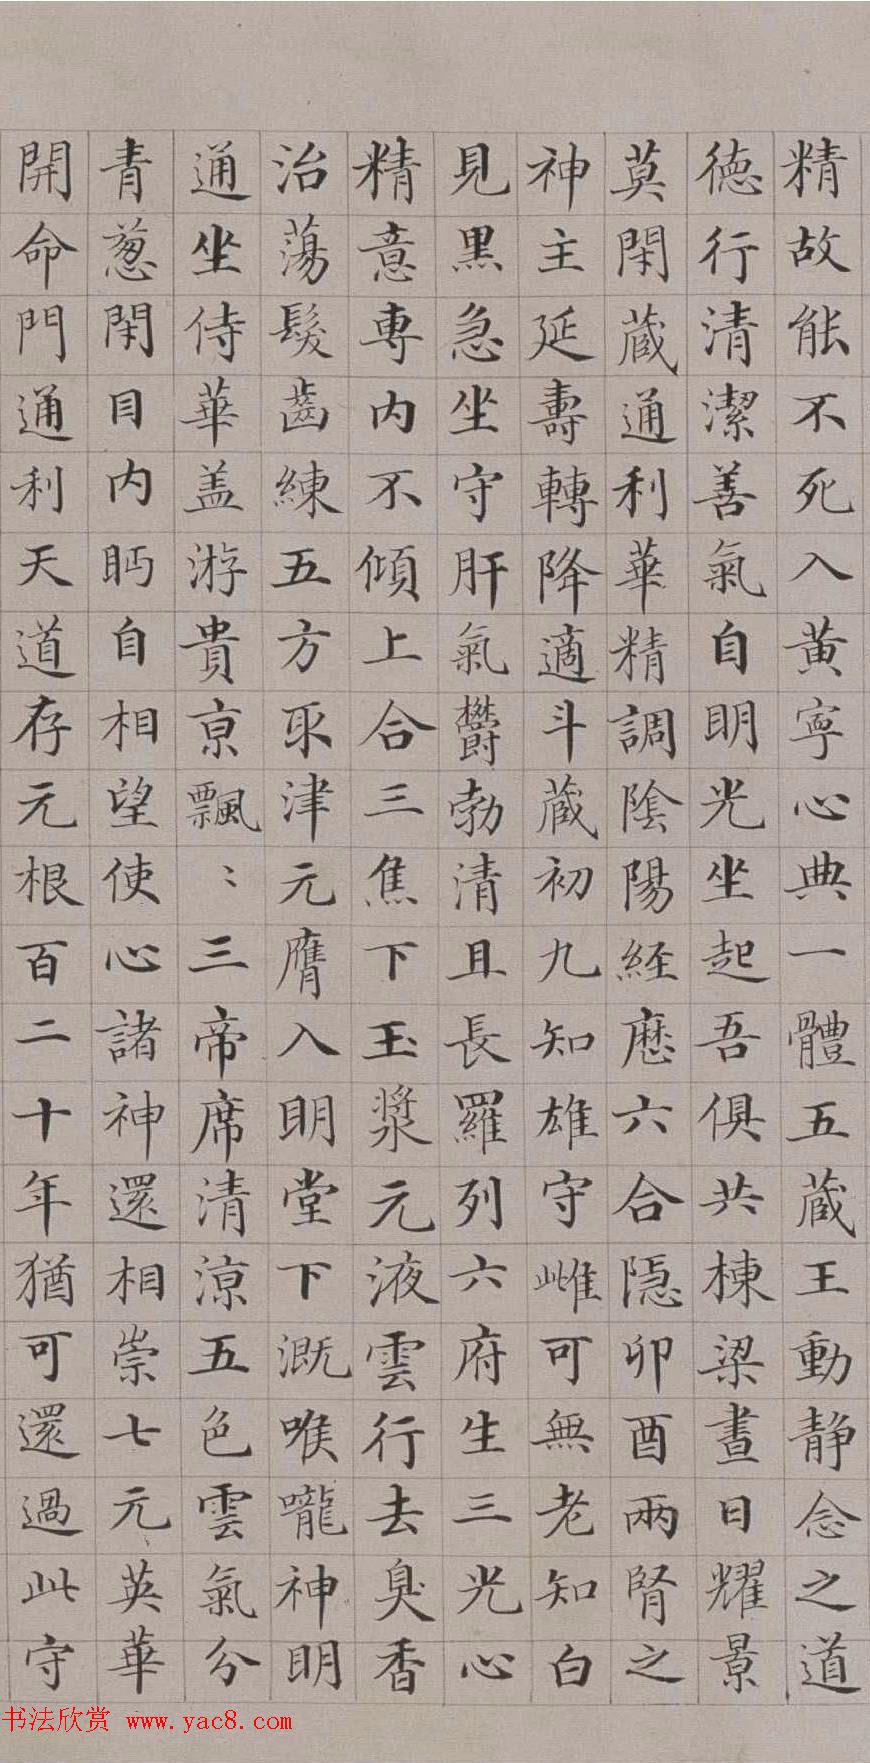 精故能不死入黄寧心典一體五蔵王動静念之道
徳行清潔善氣自明光坐起吾俱共棟梁晝日耀景
莫閑蔵通利華精調陰陽經歷六合隠卯酉兩腎之
神主延壽轉降適斗蔵初九知雄守雌可無老知白
見黒急坐守肝氣欝勃清且長羅列六府生三光心
精意専内不傾上合三焦下玉漿元液雲行去臭香
治蕩髮齒練五方取津元膺入明堂下溉喉嚨神明
通坐侍華盖游貴京飄〻三帝席清涼五色雲氣分
青葱閑目内眄自相望使心諸神還相崇七元英華
開命門通利天道存元根百二十年猶可還過此守
书法欣赏 www.yac8.com